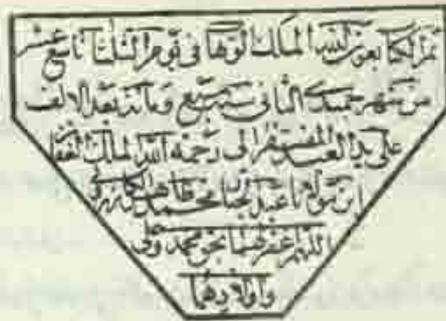 تمت الكتاب بعون الله الملك الوهاب فى يوم الثلثا تاسع عشر
من شهر جميدى الثانى سنه سبع و مائة بعد الالف
على يد العبد المفتقر الى رحمة الله الملك الغفار
ابن مولانا عبد الجبار محمد طاهر
اللهم اغفر لهما بحق محمد و على
و اولادهما